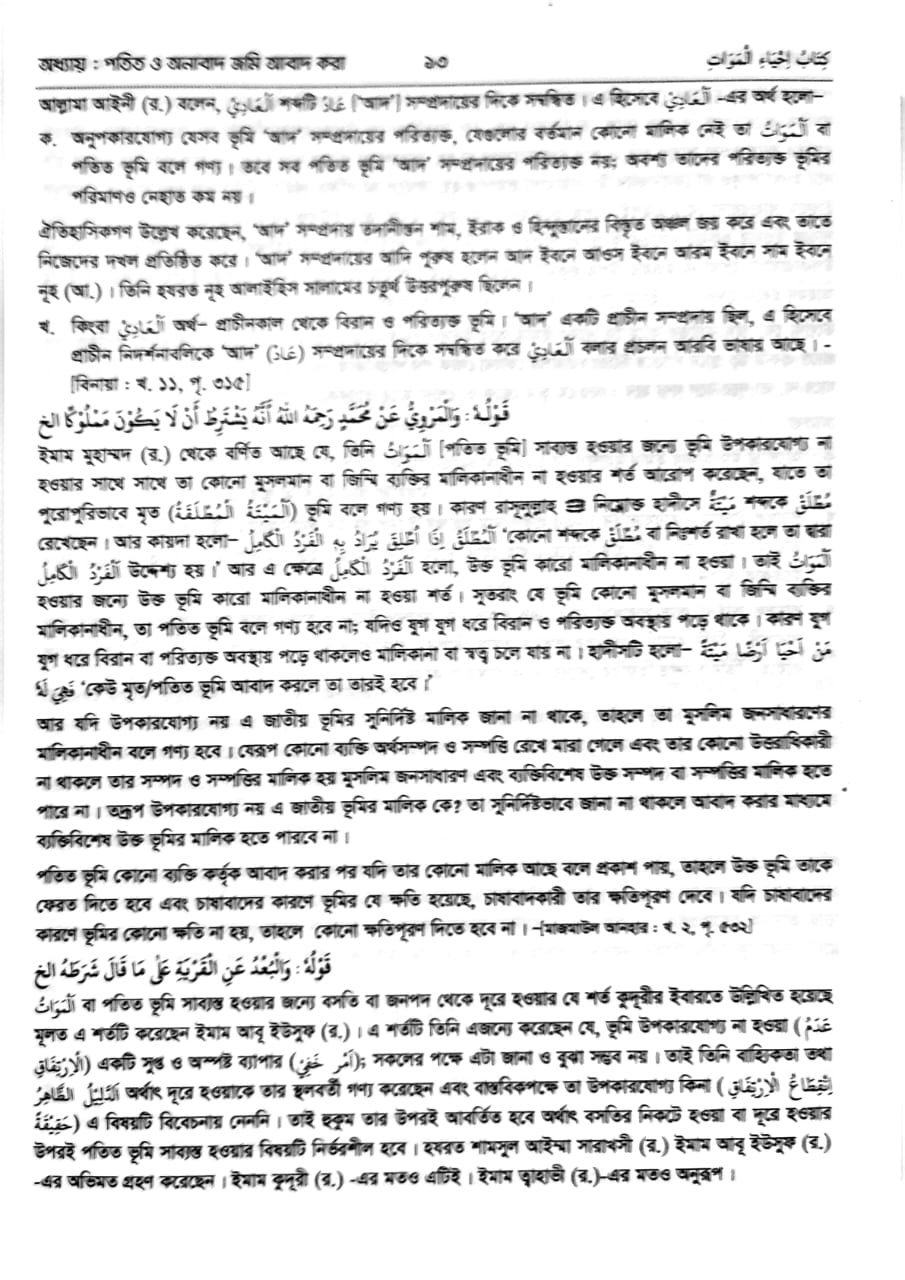 অধ্যায় : পতিত ও অনাবাদ জমি আবাদ করা ১৩ كِتَابُ إِحْيَاءِ الْمَوَاتِ
আল্লামা আইনী (র.) বলেন, اَلْعَادِيُّ শব্দটি عَادٌ ['আদ'] সম্প্রদায়ের দিকে সম্বন্ধিত। এ হিসেবে اَلْعَادِيُّ -এর অর্থ হলো–
ক. অনুপকারযোগ্য যেসব ভূমি 'আদ' সম্প্রদায়ের পরিত্যক্ত, যেগুলোর বর্তমান কোনো মালিক নেই তা اَلْمَوَاتُ বা
পতিত ভূমি বলে গণ্য। তবে সব পতিত ভূমি 'আদ' সম্প্রদায়ের পরিত্যক্ত নয়; অবশ্য তাদের পরিত্যক্ত ভূমির
পরিমাণও নেহাত কম নয়।
ঐতিহাসিকগণ উল্লেখ করেছেন, 'আদ' সম্প্রদায় তদানীন্তন শাম, ইরাক ও হিন্দুস্তানের বিস্তৃত অঞ্চল জয় করে এবং তাতে
নিজেদের দখল প্রতিষ্ঠিত করে। 'আদ' সম্প্রদায়ের আদি পুরুষ হলেন আদ ইবনে আওস ইবনে আরম ইবনে সাম ইবনে
নূহ (আ.)। তিনি হযরত নূহ আলাইহিস সালামের চতুর্থ উত্তরপুরুষ ছিলেন।
খ. কিংবা اَلْعَادِيُّ অর্থ– প্রাচীনকাল থেকে বিরান ও পরিত্যক্ত ভূমি। 'আদ' একটি প্রাচীন সম্প্রদায় ছিল, এ হিসেবে
প্রাচীন নিদর্শনাবলিকে 'আদ' (عَادٌ) সম্প্রদায়ের দিকে সম্বন্ধিত করে اَلْعَادِيُّ বলার প্রচলন আরবি ভাষায় আছে। -
[বিনায়া : খ. ১১, পৃ. ৩১৫]
قَوْلُهُ : وَالْمَرْوِيُّ عَنْ مُحَمَّدٍ رَحِمَهُ اللهُ أَنَّهُ يَشْتَرِطُ أَنْ لَا يَكُوْنَ مَمْلُوْكًا الخ
ইমাম মুহাম্মদ (র.) থেকে বর্ণিত আছে যে, তিনি اَلْمَوَاتُ [পতিত ভূমি] সাব্যস্ত হওয়ার জন্যে ভূমি উপকারযোগ্য না
হওয়ার সাথে সাথে তা কোনো মুসলমান বা জিম্মি ব্যক্তির মালিকানাধীন না হওয়ার শর্ত আরোপ করেছেন, যাতে তা
পুরোপুরিভাবে মৃত (اَلْمَيْتَةُ الْمُطْلَقَةُ) ভূমি বলে গণ্য হয়। কারণ রাসূলুল্লাহ নিম্নোক্ত হাদীসে مَيْتَةٌ শব্দকে مُطْلَقٌ
রেখেছেন। আর কায়দা হলো– اَلْمُطْلَقُ إِذَا أُطْلِقَ يُرَادُ بِهِ الْفَرْدُ الْكَامِلُ 'কোনো শব্দকে مُطْلَقٌ বা নিঃশর্ত রাখা হলে তা দ্বারা
اَلْفَرْدُ الْكَامِلُ উদ্দেশ্য হয়।' আর এ ক্ষেত্রে اَلْفَرْدُ الْكَامِلُ হলো, উক্ত ভূমি কারো মালিকানাধীন না হওয়া। তাই اَلْمَوَاتُ
হওয়ার জন্যে উক্ত ভূমি কারো মালিকানাধীন না হওয়া শর্ত। সুতরাং যে ভূমি কোনো মুসলমান বা জিম্মি ব্যক্তির
মালিকানাধীন, তা পতিত ভূমি বলে গণ্য হবে না; যদিও যুগ যুগ ধরে বিরান ও পরিত্যক্ত অবস্থায় পড়ে থাকে। কারণ যুগ
যুগ ধরে বিরান বা পরিত্যক্ত অবস্থায় পড়ে থাকলেও মালিকানা বা স্বত্ব চলে যায় না। হাদীসটি হলো– مَنْ أَحْيَا أَرْضًا مَيْتَةً
فَهِيَ لَهُ 'কেউ মৃত/পতিত ভূমি আবাদ করলে তা তারই হবে।'
আর যদি উপকারযোগ্য নয় এ জাতীয় ভূমির সুনির্দিষ্ট মালিক জানা না থাকে, তাহলে তা মুসলিম জনসাধারণের
মালিকানাধীন বলে গণ্য হবে। যেরূপ কোনো ব্যক্তি অর্থসম্পদ ও সম্পত্তি রেখে মারা গেলে এবং তার কোনো উত্তরাধিকারী
না থাকলে তার সম্পদ ও সম্পত্তির মালিক হয় মুসলিম জনসাধারণ এবং ব্যক্তিবিশেষ উক্ত সম্পদ বা সম্পত্তির মালিক হতে
পারে না। তদ্রূপ উপকারযোগ্য নয় এ জাতীয় ভূমির মালিক কে? তা সুনির্দিষ্টভাবে জানা না থাকলে আবাদ করার মাধ্যমে
ব্যক্তিবিশেষ উক্ত ভূমির মালিক হতে পারবে না।
পতিত ভূমি কোনো ব্যক্তি কর্তৃক আবাদ করার পর যদি তার কোনো মালিক আছে বলে প্রকাশ পায়, তাহলে উক্ত ভূমি তাকে
ফেরত দিতে হবে এবং চাষাবাদের কারণে ভূমির যে ক্ষতি হয়েছে, চাষাবাদকারী তার ক্ষতিপূরণ দেবে। যদি চাষাবাদের
কারণে ভূমির কোনো ক্ষতি না হয়, তাহলে কোনো ক্ষতিপূরণ দিতে হবে না। -[মাজমাউল আনহার : খ. ২, পৃ. ৫৩২]
قَوْلُهُ : وَالْبُعْدُ عَنِ الْقَرْيَةِ عَلٰى مَا قَالَ شَرَطَهُ الخ
اَلْمَوَاتُ বা পতিত ভূমি সাব্যস্ত হওয়ার জন্যে বসতি বা জনপদ থেকে দূরে হওয়ার যে শর্ত কুদূরীর ইবারতে উল্লিখিত হয়েছে
মূলত এ শর্তটি করেছেন ইমাম আবূ ইউসুফ (র.)। এ শর্তটি তিনি এজন্যে করেছেন যে, ভূমি উপকারযোগ্য না হওয়া (عَدَمُ
الْاِرْتِفَاقِ) একটি সুপ্ত ও অস্পষ্ট ব্যাপার (أَمْرٌ خَفِيٌّ); সকলের পক্ষে এটা জানা ও বুঝা সম্ভব নয়। তাই তিনি বাহ্যিকতা তথা
اَلدَّلِيْلُ الظَّاهِرُ অর্থাৎ দূরে হওয়াকে তার স্থলবর্তী গণ্য করেছেন এবং বাস্তবিকপক্ষে তা উপকারযোগ্য কিনা (اِنْقِطَاعُ الْاِرْتِفَاقِ
حَقِيْقَةً) এ বিষয়টি বিবেচনায় নেননি। তাই হুকুম তার উপরই আবর্তিত হবে অর্থাৎ বসতির নিকটে হওয়া বা দূরে হওয়ার
উপরই পতিত ভূমি সাব্যস্ত হওয়ার বিষয়টি নির্ভরশীল হবে। হযরত শামসুল আইম্মা সারাখসী (র.) ইমাম আবূ ইউসুফ (র.)
-এর অভিমত গ্রহণ করেছেন। ইমাম কুদূরী (র.) -এর মতও এটিই। ইমাম ত্বাহাভী (র.)-এর মতও অনুরূপ।